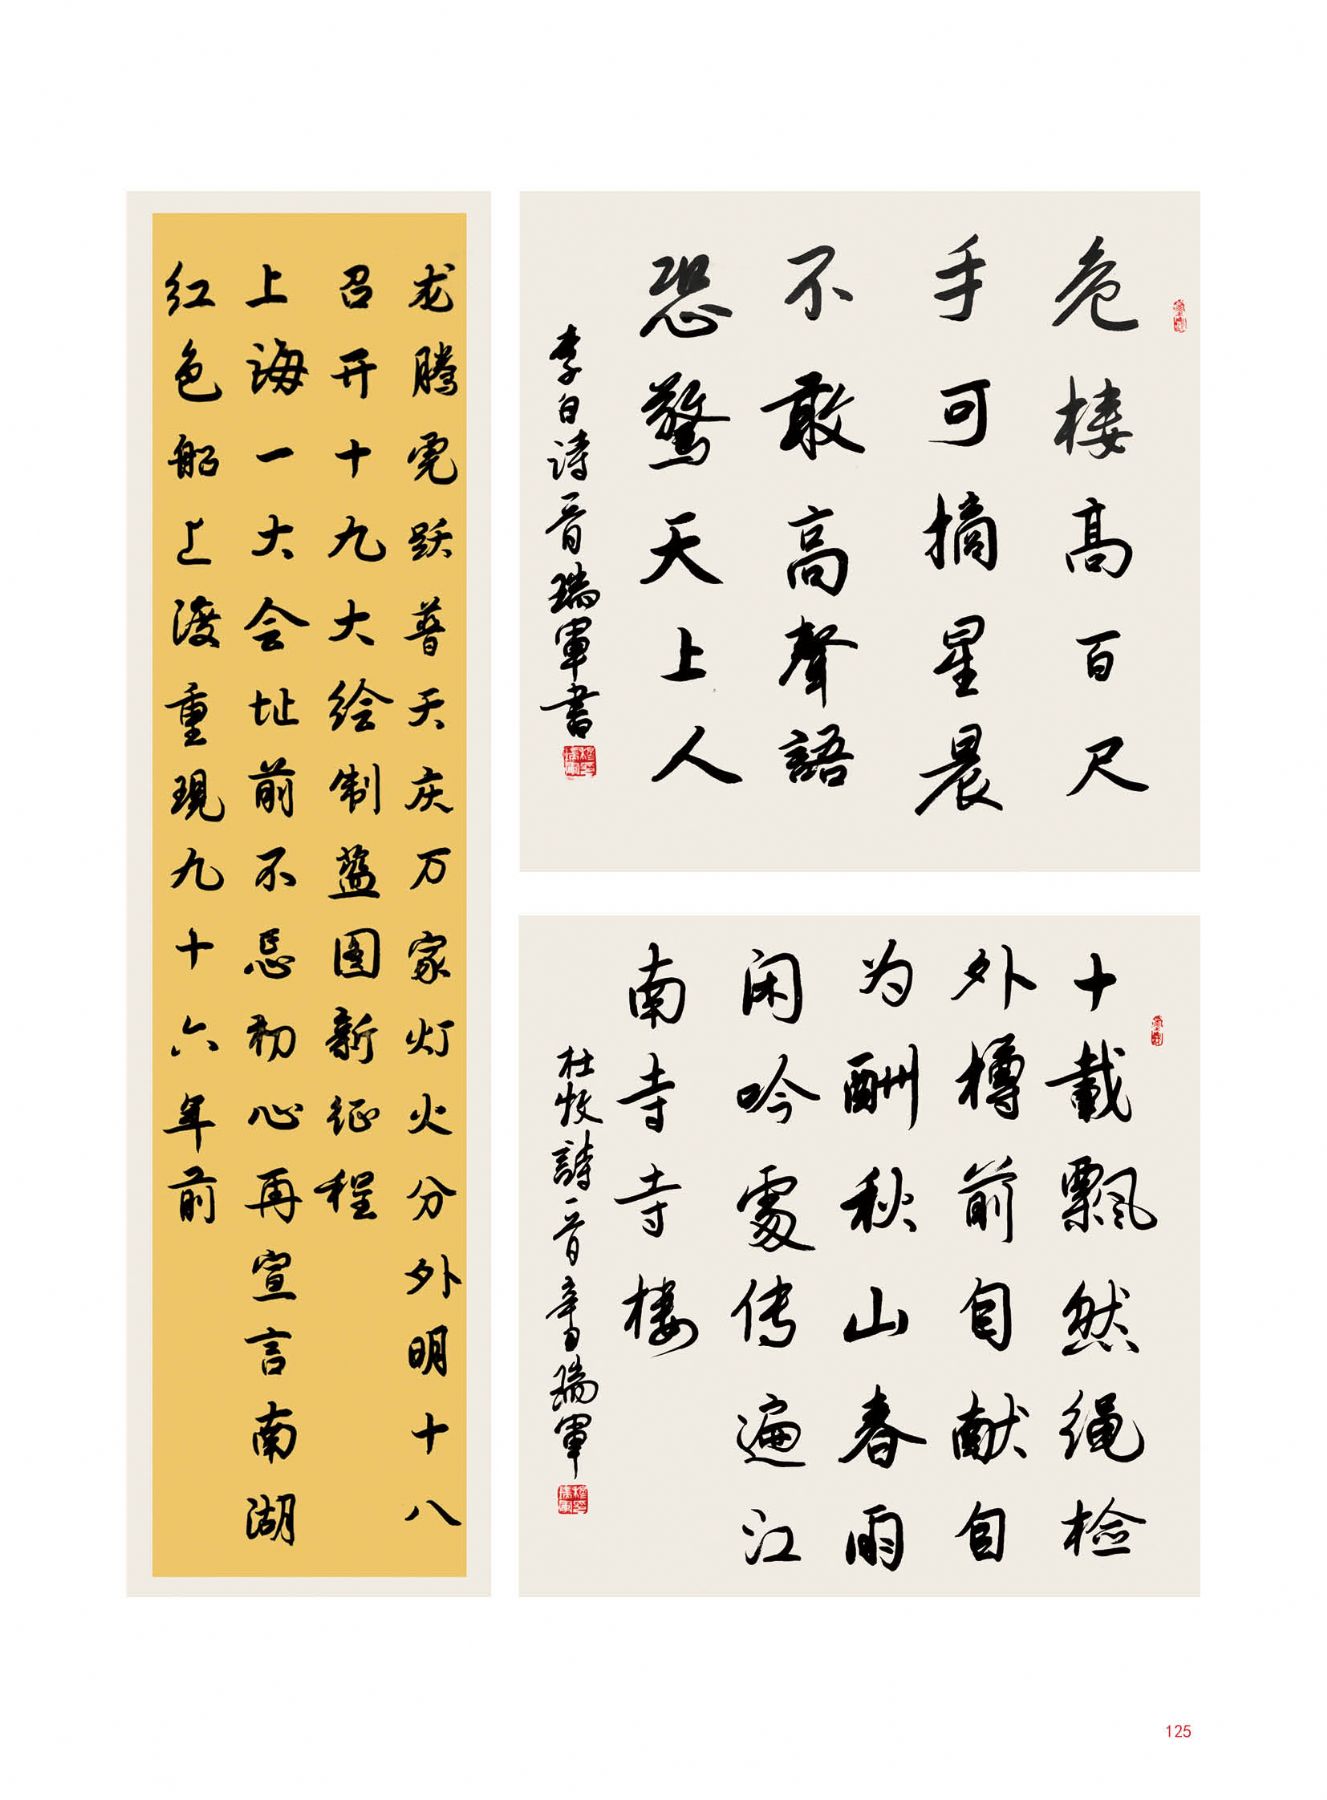 危楼高百尺
手可摘星晨
不敢高聲語
恐驚天上人
李白诗一首瑞軍書
十載飄然绳检
外樽前自献自
为酬秋山春雨
闲吟處传遍江
南寺寺楼
杜牧詩一首辛丑瑞軍
龙腾虎跃普天庆万家灯火分外明十八
召开十九大绘制蓝图新征程
上海一大会址前不忘初心再宣言南湖
红色船上渡重现九十六年前
125